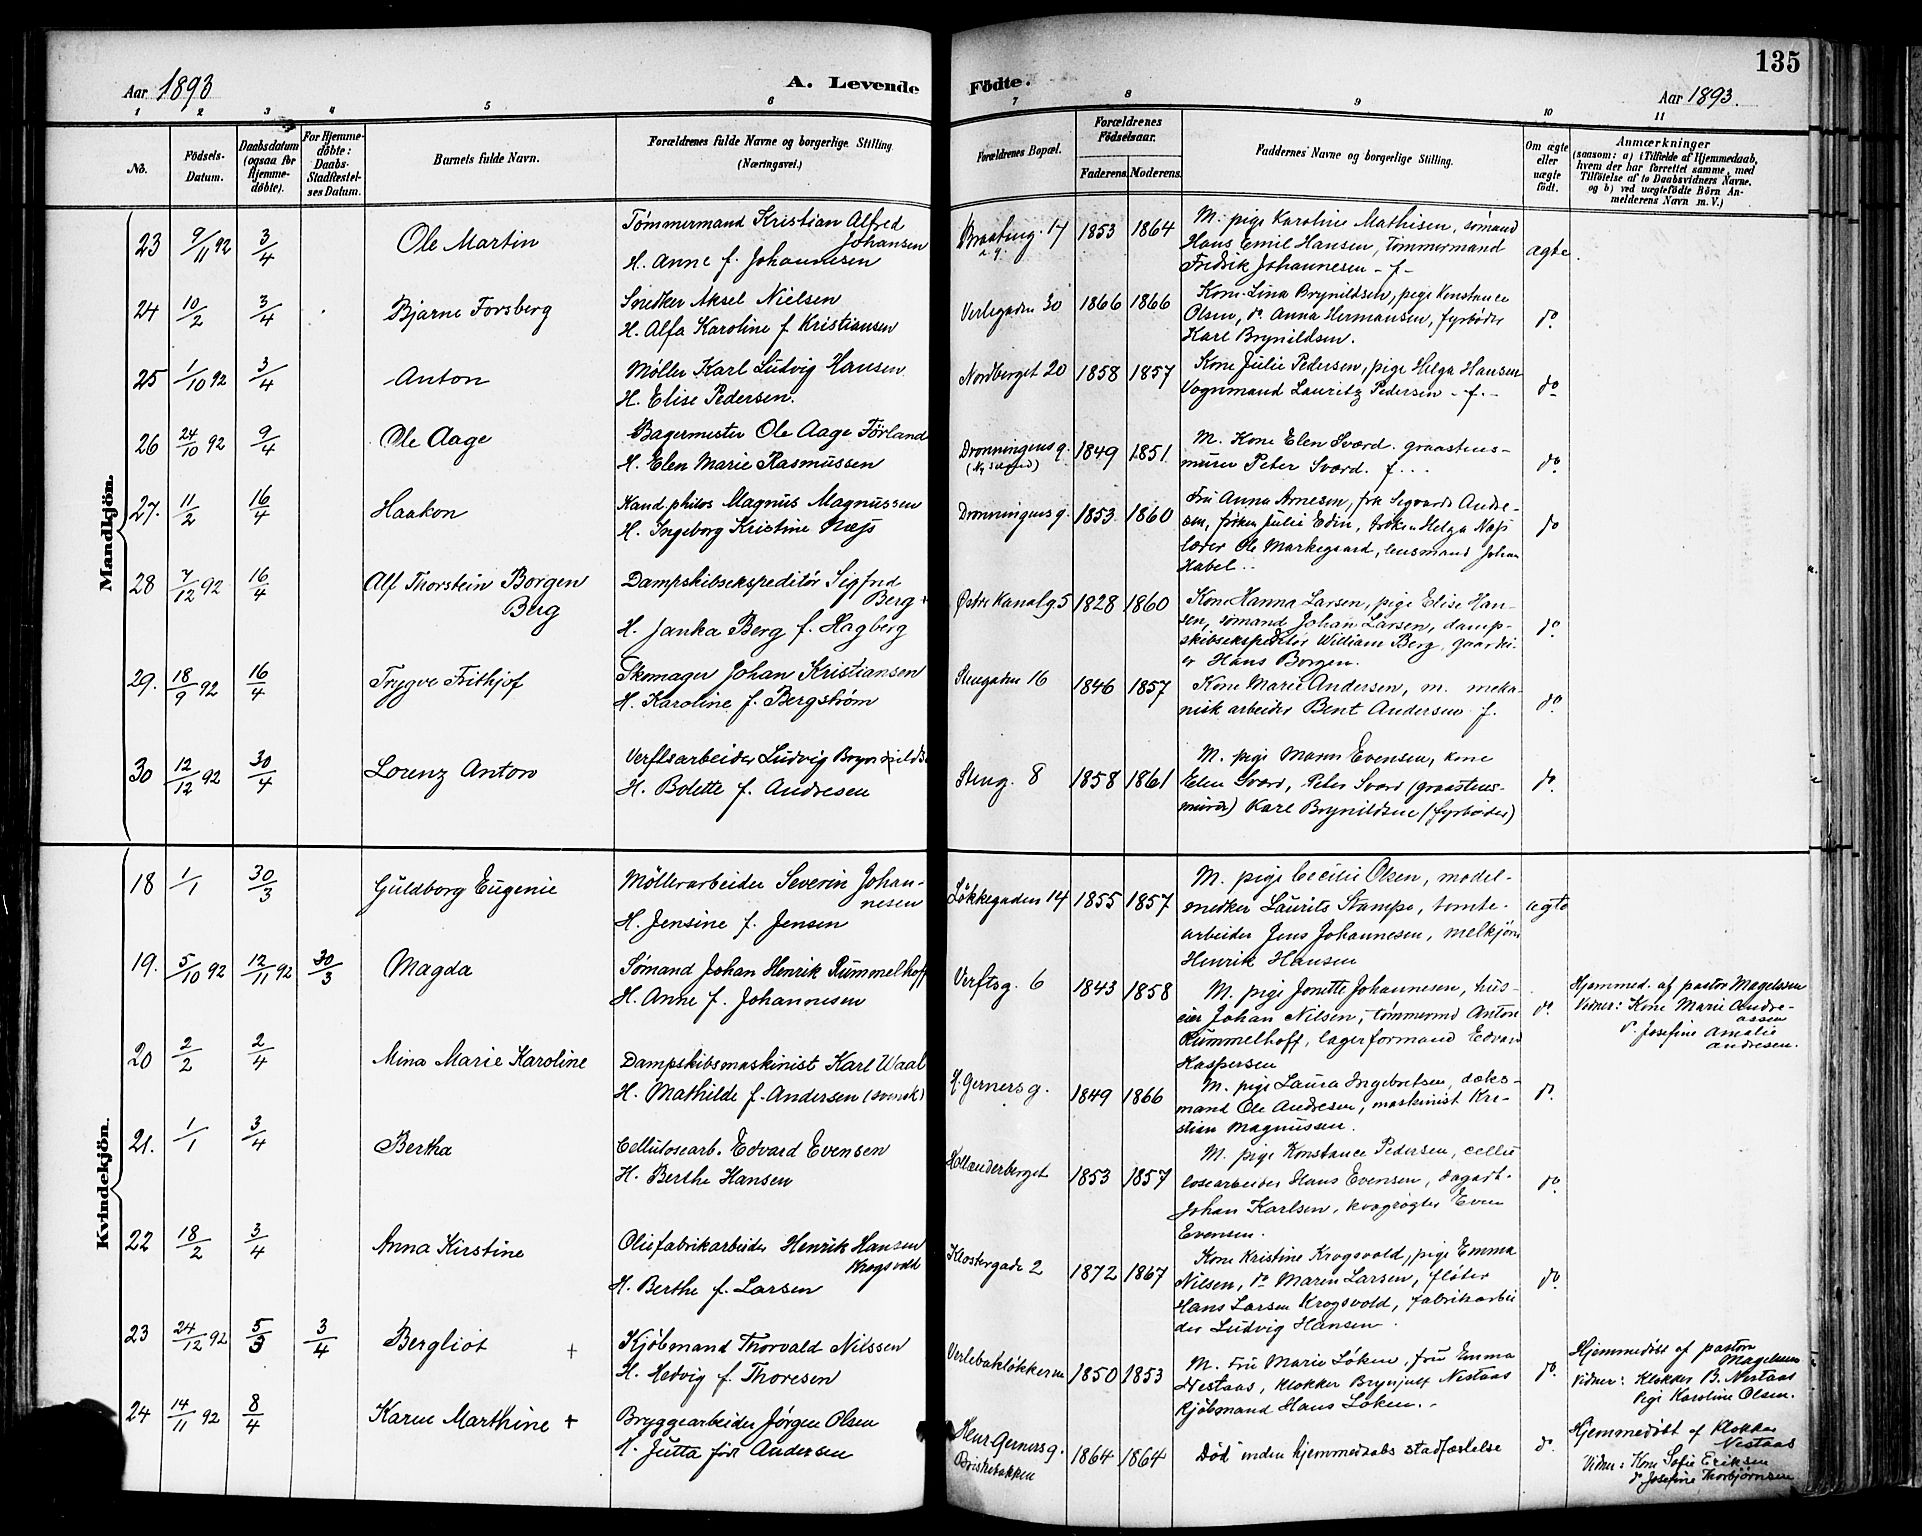 135
Aar 1893
A. Levende Födte.
Aar 1893.
1 2 3 4 5 6 7 8 9 10 11
No.
Födsels-
Datum.
Daabsdatum
(ogsaa for
Hjemme-
døbte).
For Hjemme-
døbte:
Daabs-
Stadfæstel-
ses Datum.
Barnets fulde Navn.
Forældrenes fulde Navne og borgerlige Stilling
(Næringsvei.)
Forældrenes Bopæl.
Forældrenes
Födselsaar.
Faderens.
Moderens.
Faddernes Navne og borgerlige Stilling.
Om ægte
eller
uægte
født.
Anmærkninger
(saasom: a) i Tilfælde af Hjemmedaab,
hvem der har forrettet samme, med
Tilföielse af to Daabsvidners Navne,
og b) ved uægtefödte Börn An-
melderens Navn m. V.)
Mandkjön.
23 9/11 92 3/4 Ole Martin
Tømmermand Kristian Alfred
Johansen
H. Anne f. Johannesen
17 1853 1864
M. pige Karoline Mathisen, sømand
Hans Emil Hansen, Tømmermand
Fredrik Johannesen - f -
ægte
24 10/2 3/4 Bjarne Forsberg
Snedker Aksel Nielsen
H. Alfa Karoline f Kristiansen
Verlegaden 30 1866 1866
Kone Lina Brynildsen, pige Konstance
Olsen, do. Anna Hermansen, fyrbøder
Karl Brynildsen.
do.
25 1/10 92 3/4 Anton
Møller Karl Ludvig Hansen
H. Elise Pedersen.
Nordberget 20 1858 1857
Kone Julie Pedersen, pige Helga Hansen
Vognmand Lauritz Pedersen - f. -
do
26 24/10 92 9/4 Ole Aage
Bagermester Ole Aage Førland
H. Elen Marie Rasmussen
Dronningens g.
1849 1851
M. Kone Elen Sværd. graastens-
murer Peter Sværd. f...
do.
27. 11/2 16/4 Haakon
Kand philos Magnus Magnussen
H. Ingeborg Kristine Næss
Dronningens g. 1853 1860
Fru Anna Arnesen, frk Sigvarda Andre-
sen, frøken Julie Edin, frøken Helga Næss
lærer Ole Markegaard, lensmand Johan
Habel..
do
28 7/12 92 16/4 Alf Thorstein Borgen
Berg
Dampskibsekspeditør Sigfred
Berg +
H. Janka Berg f. Hagberg
Østre Kanalg. 5 1828 1860
Kone Hanna Larsen, pige Elise Han-
sen, sømand Johan Larsen, damp-
skibsekspeditør William Berg, gaardei-
er Hans Borgen.
do.
29. 18/9 92 16/4 Trygve Frithjof
Skomager Johan Kristiansen
H. Karoline f. Bergstrøm
Stengaden 16 1846 1857
Kone Marie Andersen, m. meka-
nisk arbeider Bent Andersen f.
do.
30 12/12 92 30/4 Lorenz Anton
Verftsarbeider Ludvig Brynildsen
H. Bolette f. Andresen
Steng. 8 1858 1861
M. pige Maren Evensen, kone
Elen Sværd, Peter Sværd (graastens-
murer) Karl Brynildsen (fyrbøder)
do.
Kvindekjön.
18 1/1 30/3 Guldborg Eugenie
Møllerarbeider Severin Johan-
nesen
H. Jensine f. Jensen
Løkkegaden 14 1855 1857
M. pige Cecilie Olsen, model-
snedker Laurits Stampe, tomte-
arbeider Jens Johannesen, melkjører
Henrik Hansen
ægte
19. 5/10 92 12/11 92 30/3 Magda
Sømand Johan Henrik Rummelhoff
H. Anne f. Johannesen
Verftsg. 6 1843 1858
M. pige Jonette Johannesen, hus-
eier Johan Nilsen, tømmermd Anton
Rummelhoff, lagerformand Edvard
Kaspersen
do.
Hjemmed. af pastor Magelssen
Vidner: Kone Marie Andre-
assen
do. Josefine Amalie
Andresen.
20 2/2 2/4 Mina Marie Karoline
Dampskibsmaskinist Karl Waal
H. Mathilde f. Andersen (svensk)
H. Gerners g. 1849 1866
M. pige Laura Ingebretsen, doks-
mand Ole Andresen, maskinist Kri-
stian Magnussen.
do.
21. 1/1 3/4 Bertha
Cellulosearb. Edvard Evensen
H. Berthe Hansen
Hollænderberget 1853 1857
M. pige Konstance Pedersen, cellu
losearbeider Hans Evensen, dagarb.
Johan Karlsen, krøgrøgter Even
Evensen.
do.
22 18/2 3/4 Anna Kirstine
Oliefabrikarbeider Henrik Hansen
Krogsvold
H. Berthe f. Larsen
Klostergade 2 1872 1867
Kone Kristine Krogsvold, pige Emma
Nilsen, do Maren Larsen, fløter
Hans Larsen Krogsvold, fabrikarbei
der Ludvig Hansen.
do.
23 24/12 92 5/3 3/4 Bergliot +
Kjøbmand Thorvald Nilssen
H. Hedvig f. Thoresen
Verlebakløkkerne 1850 1853
M. Fru Marie Løken, fru Emma
Nestaas, klokker Brynjulf Nestaas
Kjøbmand Hans Løken..
do.
Hjemmedøbt af pastor
Magelssen
Vidner: Klokker B. Nestaas
Pige Karoline Olsen.
24 14/11 92 8/4 Karen Marthine +
Bryggearbeider Jørgen Olsen
H. Jutta født Andersen
Henr Gerners g.
Brislebakken
1864 1864
Død inden hjemmedaabs stadfæstelse
do.
Hjemmedøbt af Klokker
Nestaas
Vidner: Kone Sofie Eriksen
do Josefine Thorbjørnsen